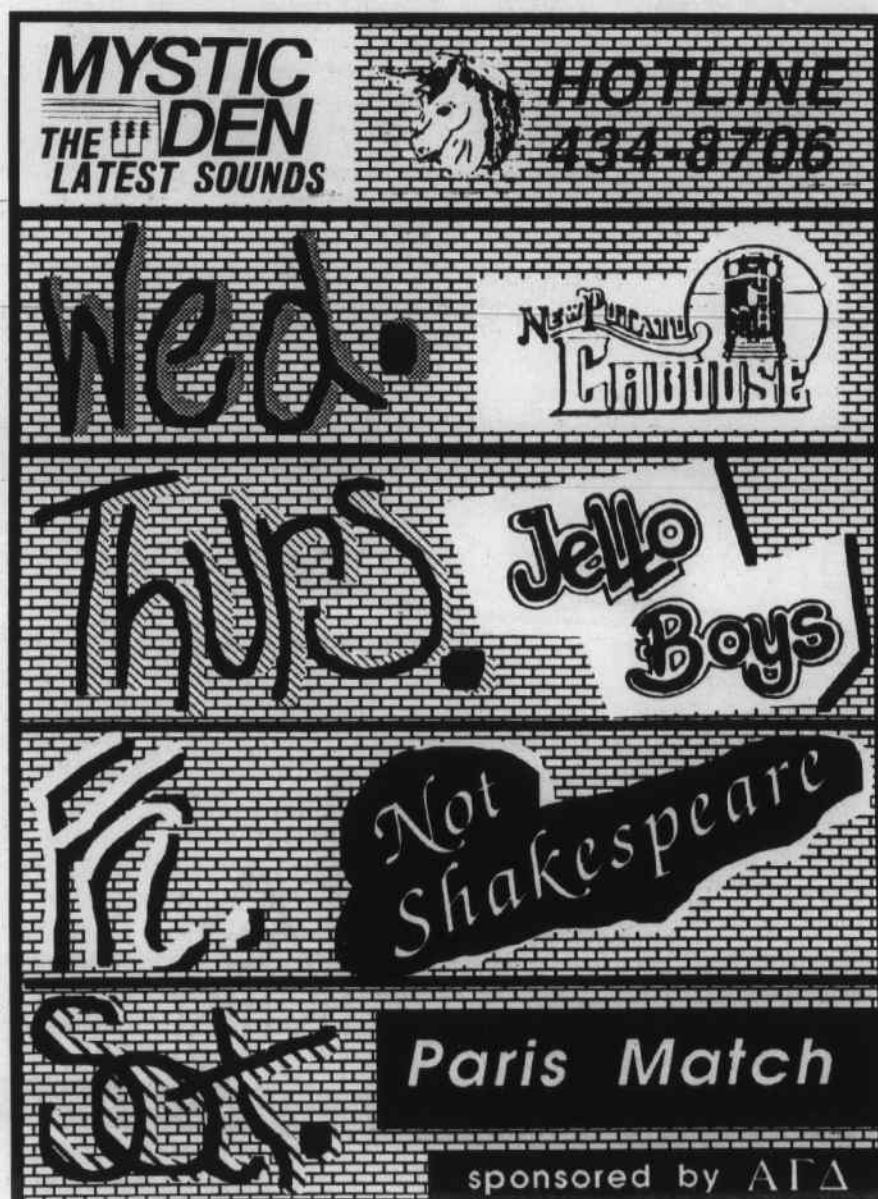 MYSTIC
THE DEN
LATEST SOUNDS
HOTLINE
434-8706
Wed.
NEW POTATO
CABOOSE
Thurs.
Jello
Boys
Fri.
Not
Shakespeare
Sat.
Paris Match
sponsored by ΑΓΔ